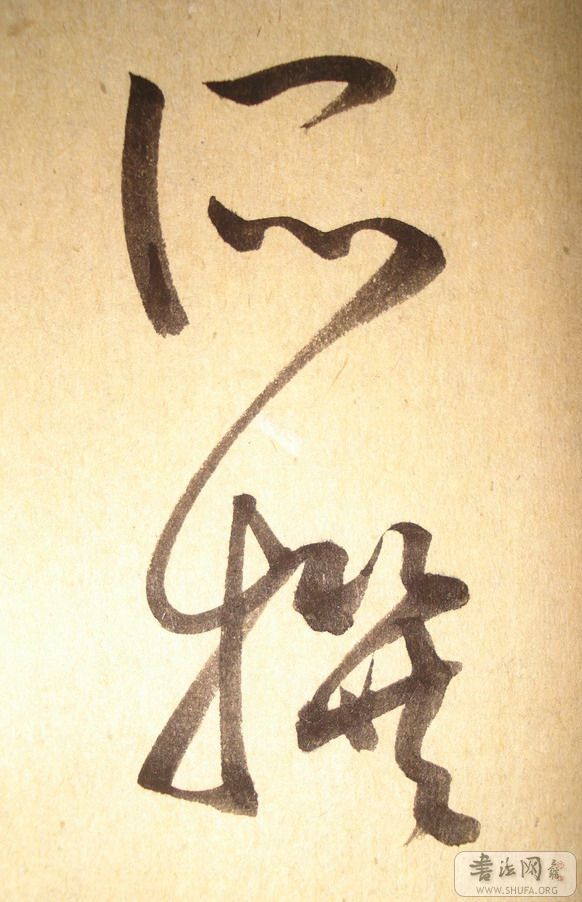 所撰
書法网
WWW.SHUFA.ORG